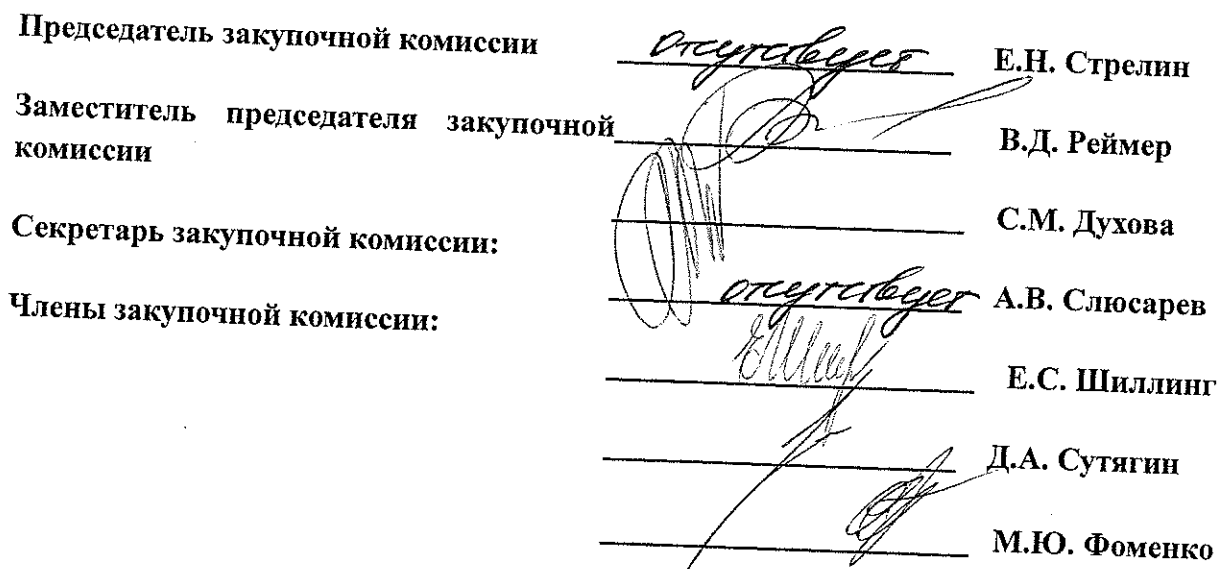 Председатель закупочной комиссии отсутствует Е.Н. Стрелин
Заместитель председателя закупочной
комиссии В.Д. Реймер
Секретарь закупочной комиссии: С.М. Духова
Члены закупочной комиссии: отсутствует А.В. Слюсарев
Е.С. Шиллинг
Д.А. Сутягин
М.Ю. Фоменко